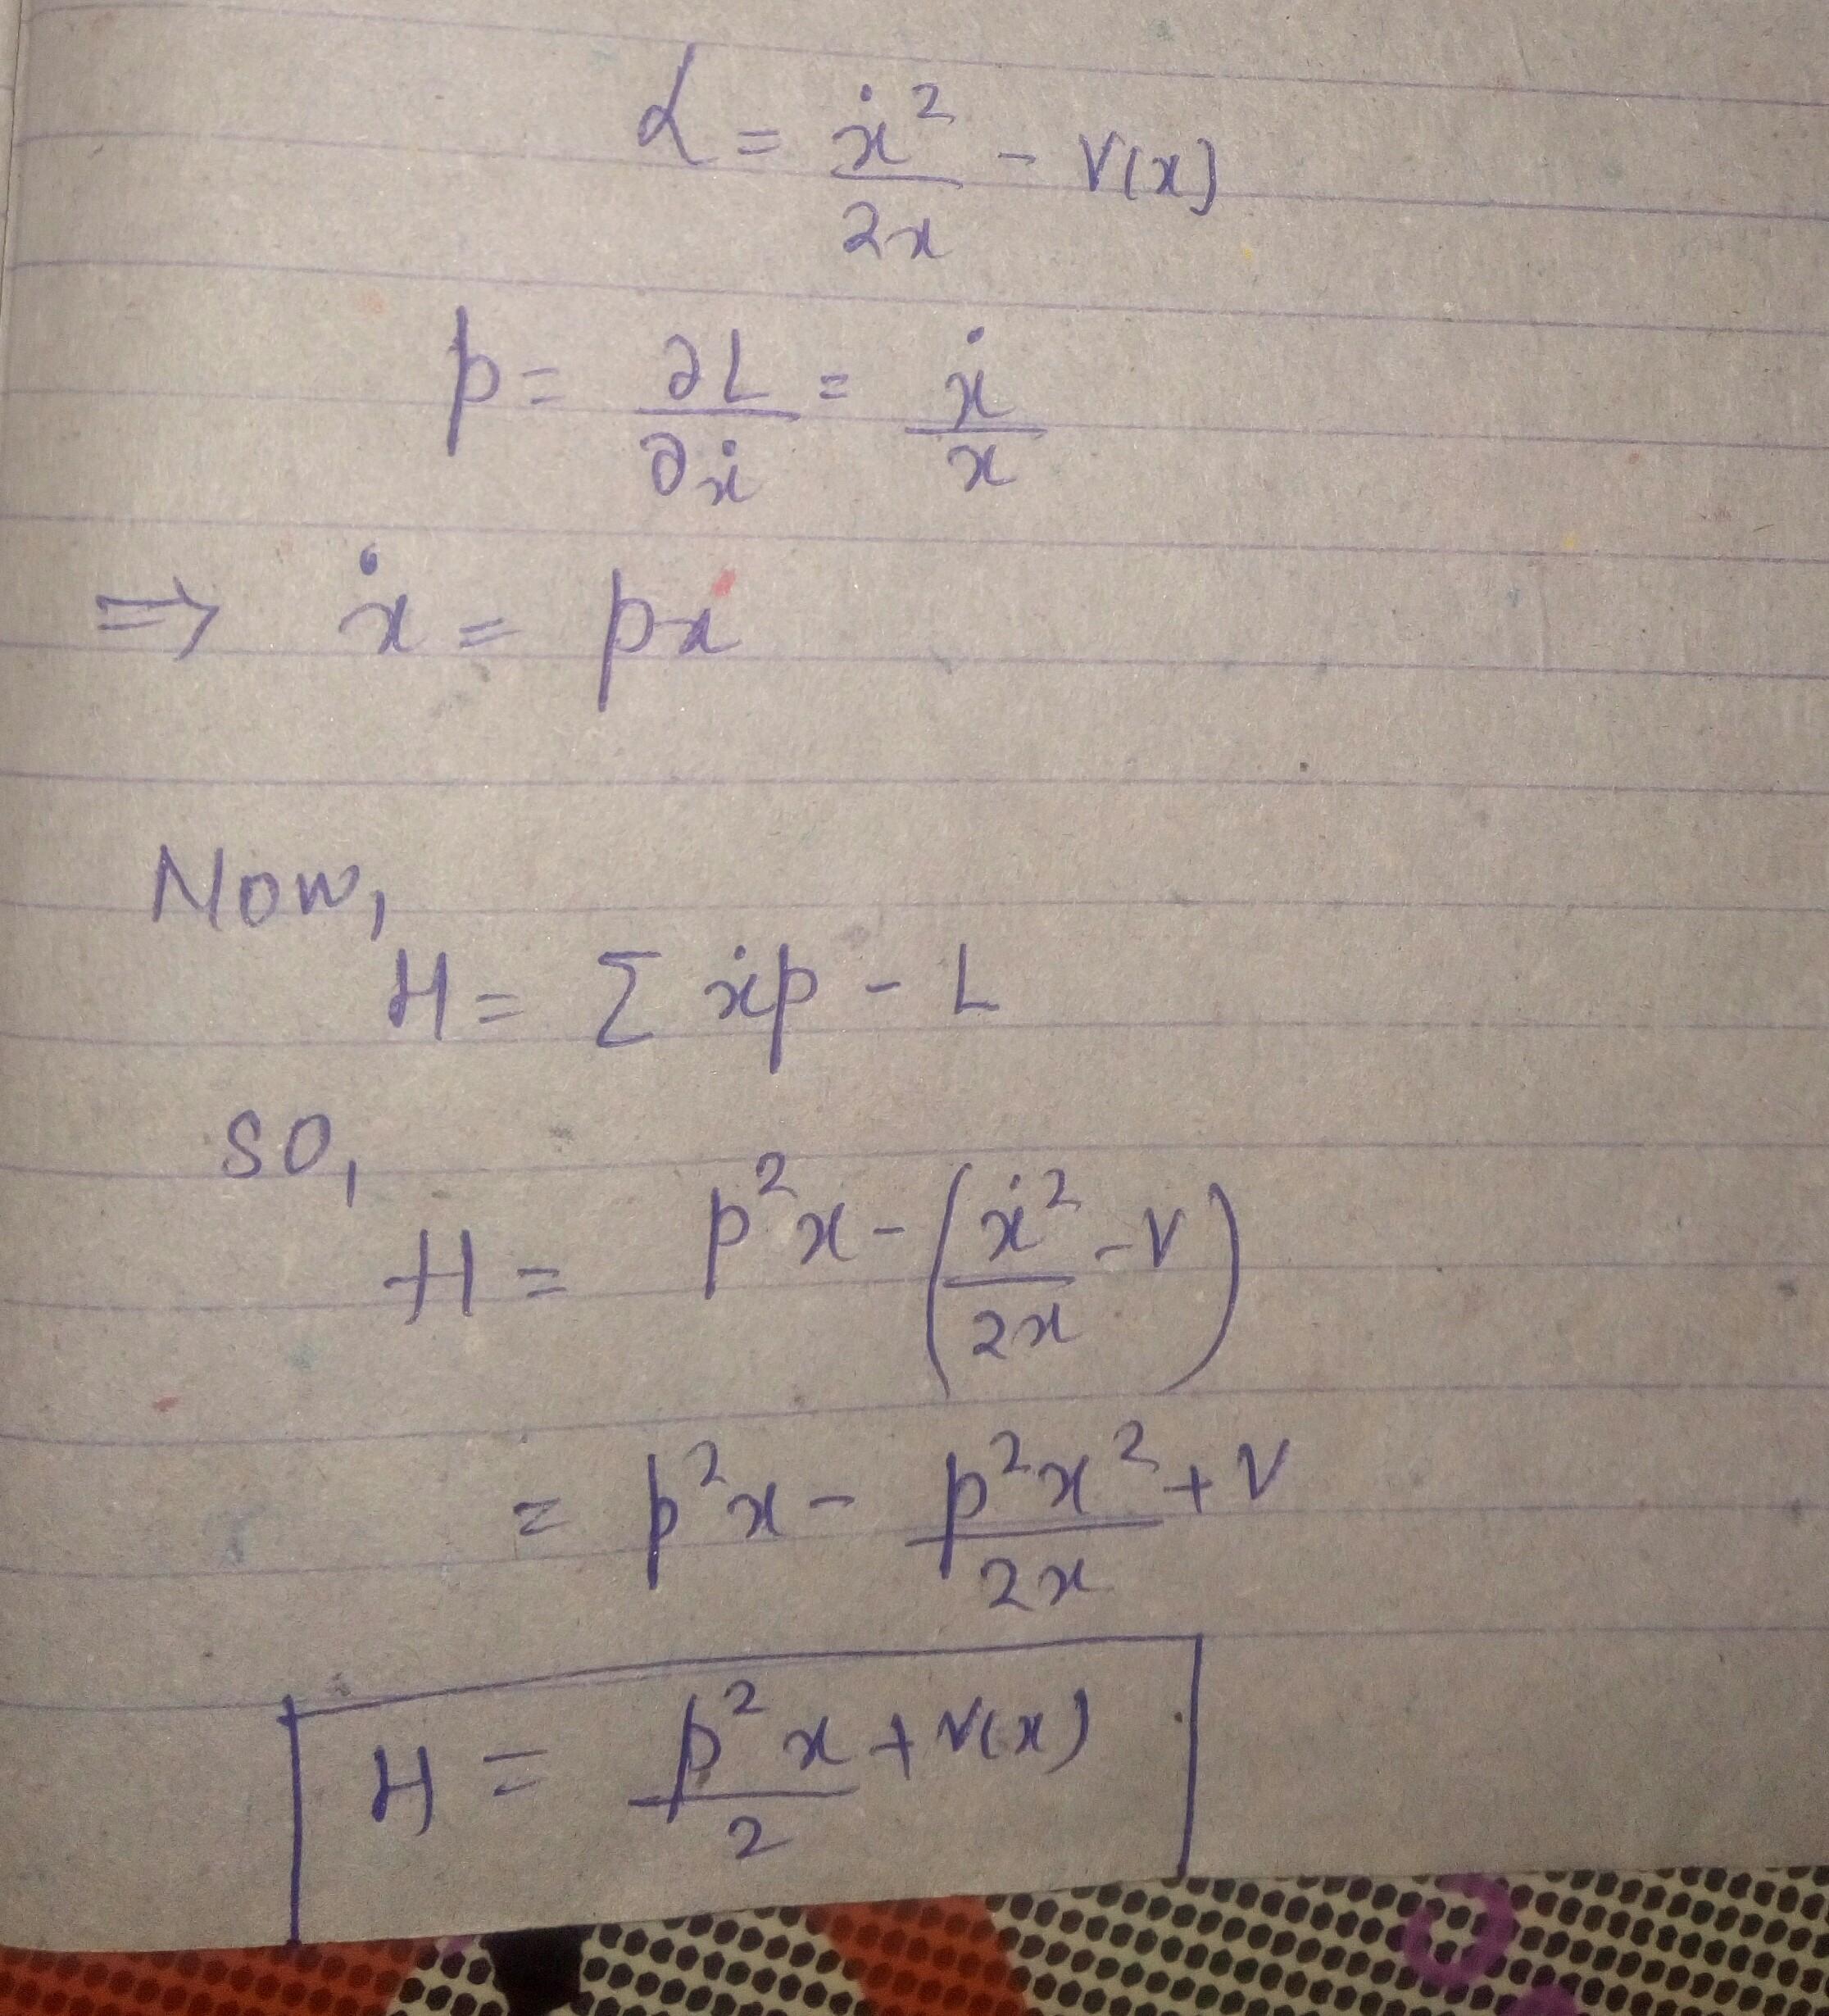 L = ẋ²/2x - V(x)
p = ∂L/∂ẋ = ẋ/x
⇒ ẋ = px
Now,
H = Σ ẋp - L
SO,
H = p²x - (ẋ²/2x - V)
= p²x - p²x²/2x + V
H = p²x/2 + V(x)